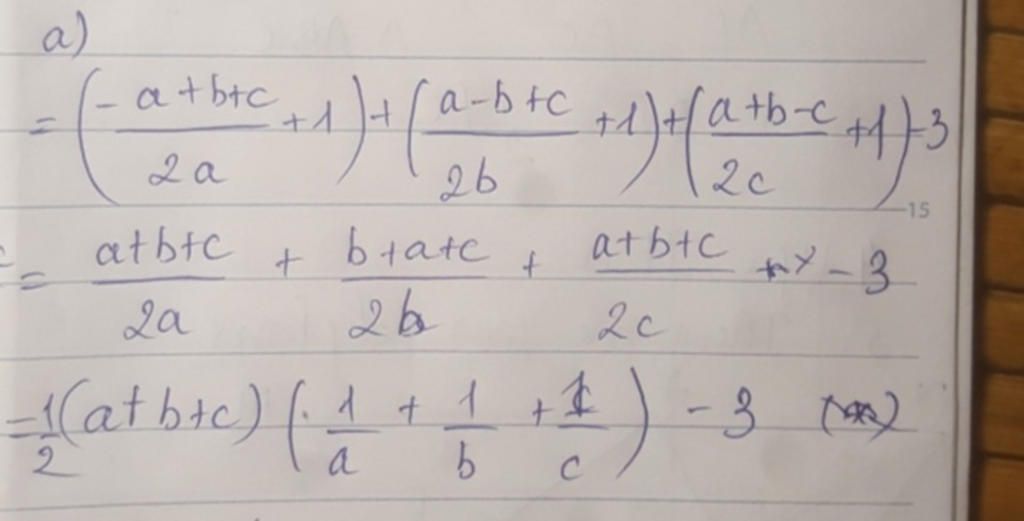 a)
= (-a+b+c/2a + 1) + (a-b+c/2b + 1) + (a+b-c/2c + 1) - 3
15
= a+b+c/2a + b+a+c/2b + a+b+c/2c - 3
= 1/2 (a+b+c) (1/a + 1/b + 1/c) - 3 (**)